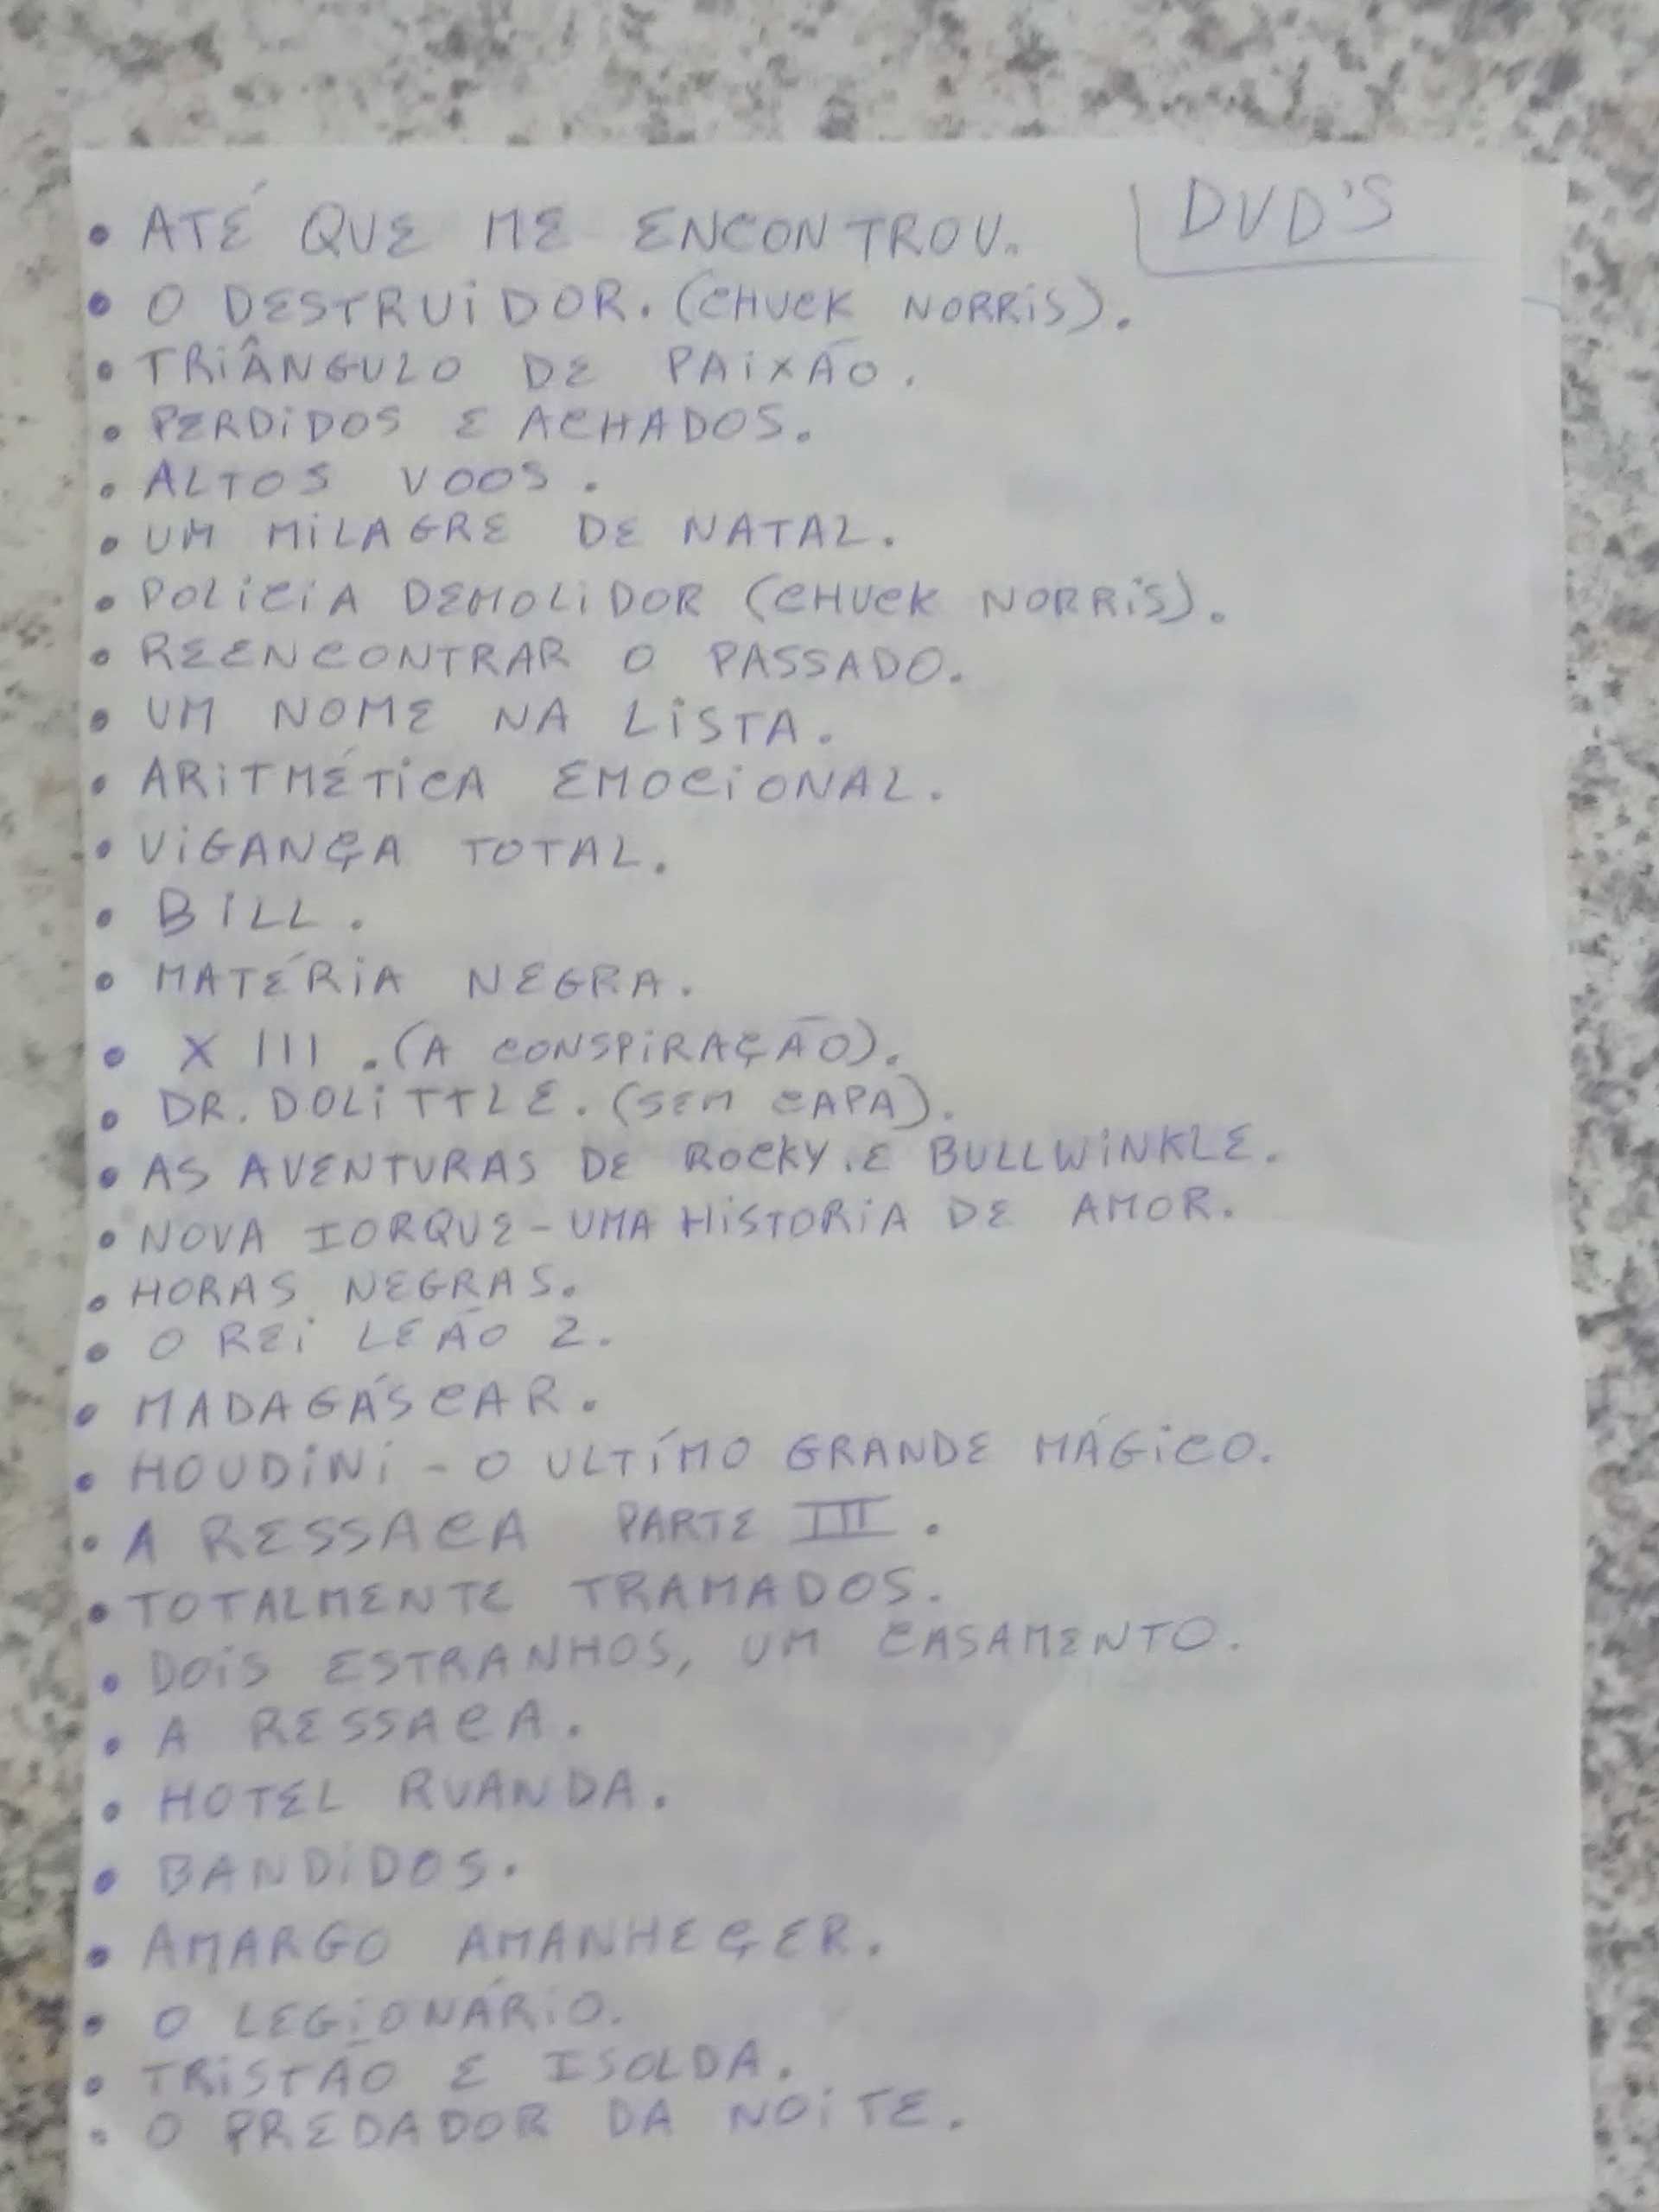 DVD'S
• ATÉ QUE ME ENCONTROU.
• O DESTRUIDOR. (CHUCK NORRIS).
• TRIÂNGULO DE PAIXÃO.
• PERDIDOS E ACHADOS.
• ALTOS VOOS.
• UM MILAGRE DE NATAL.
• POLICIA DEMOLIDOR (CHUCK NORRIS).
• REENCONTRAR O PASSADO.
• UM NOME NA LISTA.
• ARITMÉTICA EMOCIONAL.
• VIGANÇA TOTAL.
• BILL.
• MATÉRIA NEGRA.
• XIII. (A CONSPIRAÇÃO).
• DR. DOLITTLE. (SEM CAPA).
• AS AVENTURAS DE ROCKY.E BULLWINKLE.
• NOVA IORQUE - UMA HISTORIA DE AMOR.
• HORAS NEGRAS.
• O REI LEÃO 2.
• MADAGÁSCAR.
• HOUDINI - O ULTÍMO GRANDE MÁGICO.
• A RESSACA PARTE III.
• TOTALMENTE TRAMADOS.
• DOIS ESTRANHOS, UM CASAMENTO.
• A RESSACA.
• HOTEL RUANDA.
• BANDIDOS.
• AMARGO AMANHEÇER.
• O LEGIONÁRIO.
• TRISTÃO E ISOLDA.
• O PREDADOR DA NOITE.